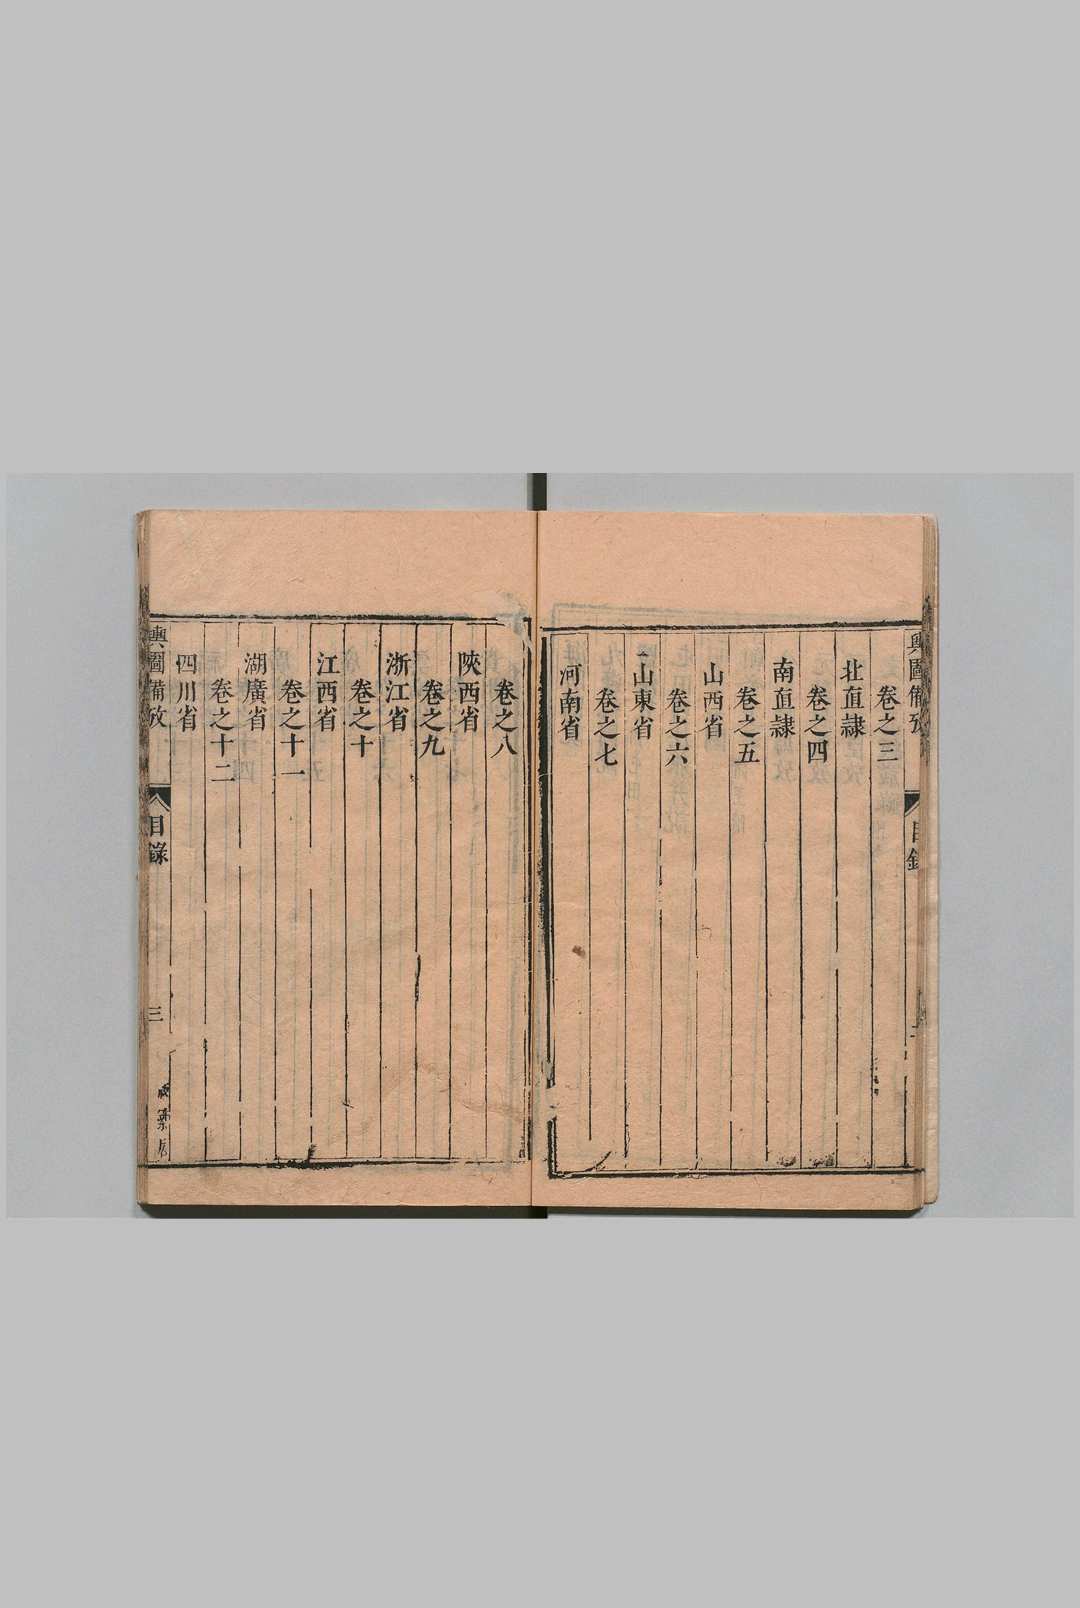 輿圖備攷
目錄
卷之三
北直隷
卷之四
南直隷
卷之五
山西省
卷之六
山東省
卷之七
河南省
卷之八
陝西省
卷之九
浙江省
卷之十
江西省
卷之十一
湖廣省
卷之十二
四川省
輿圖備攷
目錄
三